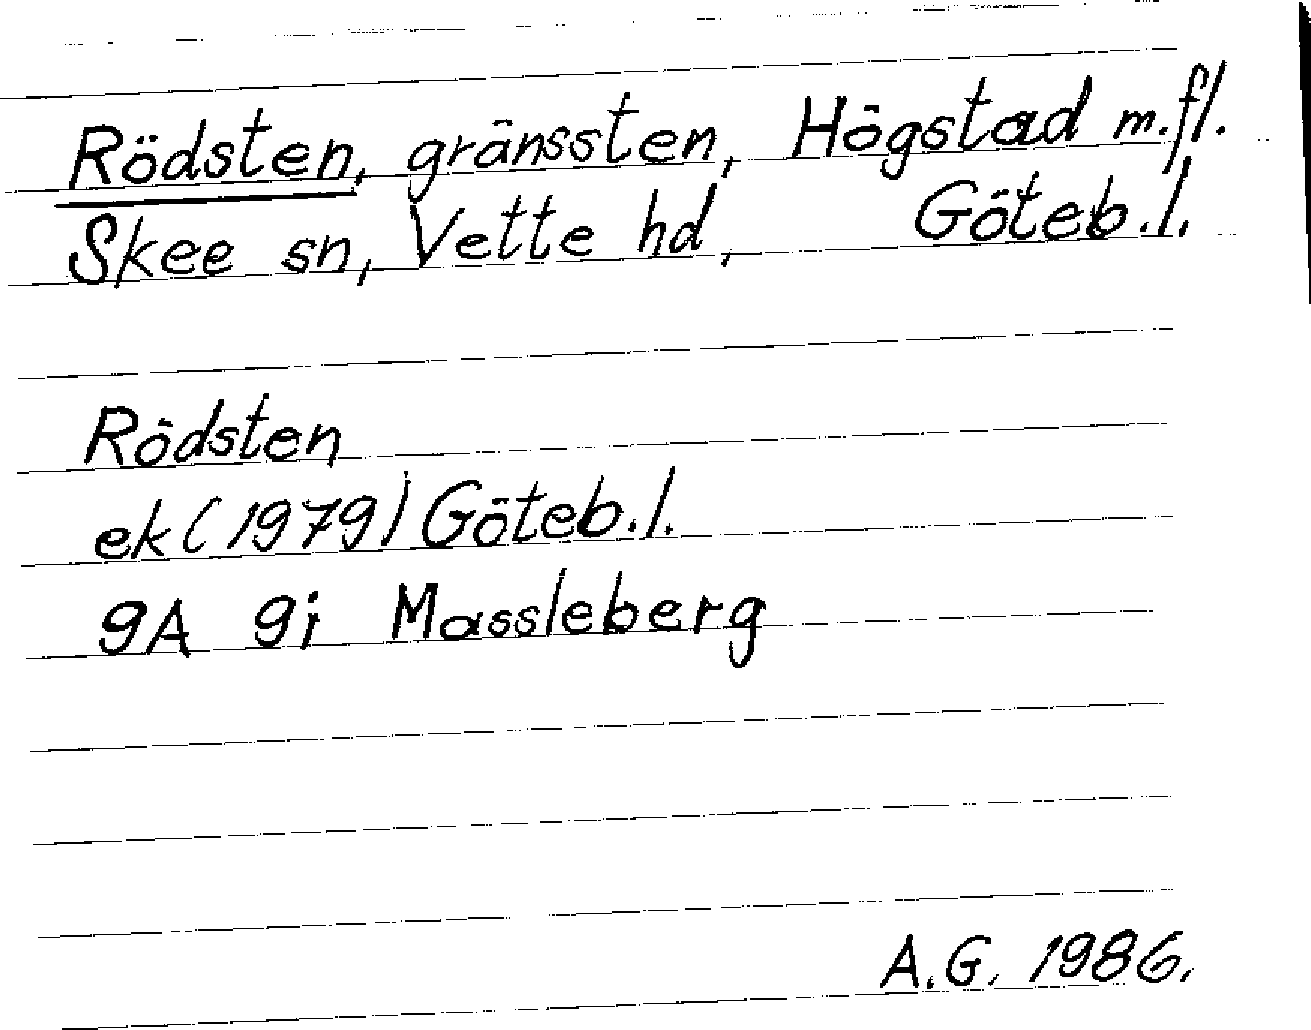 Rödsten, gränssten, Högstad m.fl.
Skee sn, Vette hd, Göteb.l.
Rödsten
ek (1979) Göteb.l.
9A 9i Massleberg
A.G. 1986.